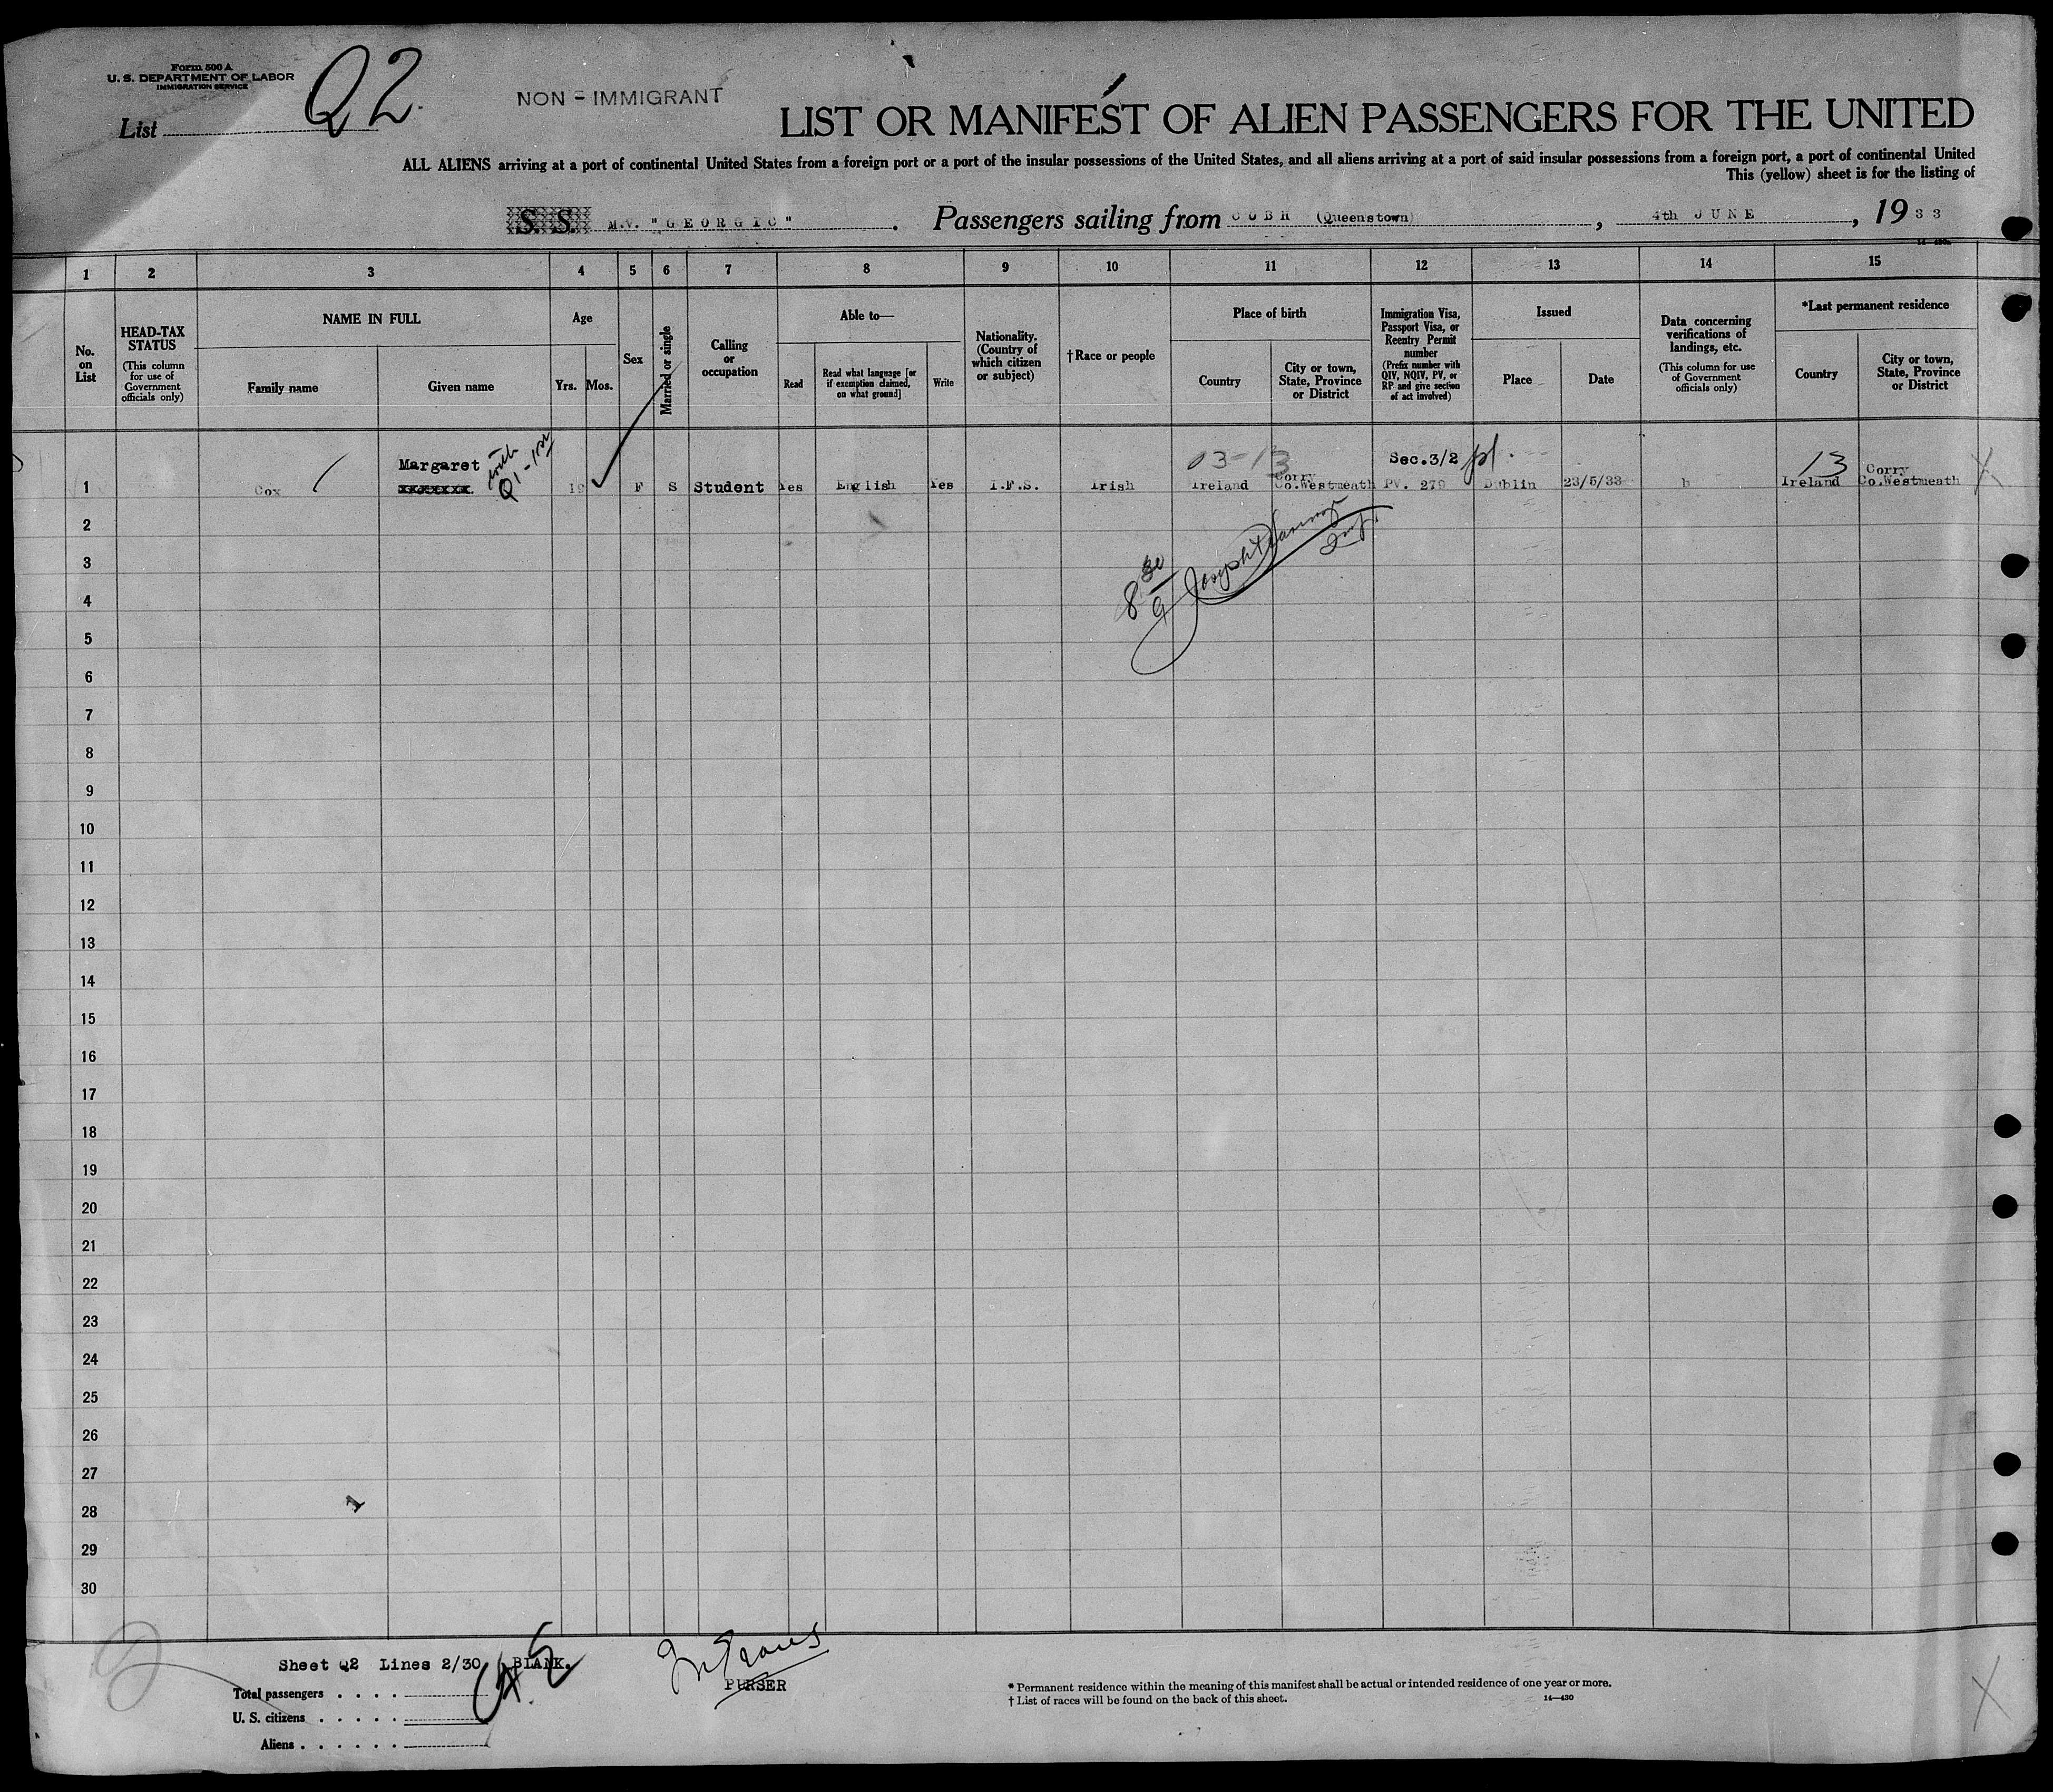 Form 500 A
U. S. DEPARTMENT OF LABOR
IMMIGRATION SERVICE
List Q2
NON - IMMIGRANT
LIST OR MANIFEST OF ALIEN PASSENGERS FOR THE UNITED
ALL ALIENS arriving at a port of continental United States from a foreign port or a port of the insular possessions of the United States, and all aliens arriving at a port of said insular possessions from a foreign port, a port of continental United
This (yellow) sheet is for the listing of
S. S. M.V. "GEORGIC". Passengers sailing from COBH (Queenstown), 4th JUNE, 1933
1 2 3 4 5 6 7 8 9 10 11 12 13 14 15
No. on List
HEAD-TAX STATUS
(This column for use of Government officials only)
NAME IN FULL
Family name
Given name
Age
Yrs.
Mos.
Sex
Married or single
Calling or occupation
Able to—
Read
Read what language [or if exemption claimed, on what ground]
Write
Nationality. (Country of which citizen or subject)
†Race or people
Place of birth
Country
City or town, State, Province or District
Immigration Visa, Passport Visa, or Reentry Permit number
(Prefix number with QIV, NQIV, PV, or RP and give section of act involved)
Issued
Place
Date
Data concerning verifications of landings, etc.
(This column for use of Government officials only)
*Last permanent residence
Country
City or town, State, Province or District
Margaret with Q1-1 03-13 Sec.3/2 13 Corry
1 Cox 19 F S Student Yes English Yes I.F.S. Irish Ireland Corry Co.Westmeath PV. 279 Dublin 23/5/33 b Ireland Co.Westmeath X
2
3
4
5
6
7
8
9
10
11
12
13
14
15
16
17
18
19
20
21
22
23
24
25
26
27
28
29
30
Sheet Q2 Lines 2/30 BLANK.
PURSER
Total passengers . . . .
U. S. citizens . . . . .
Aliens . . . . . .
* Permanent residence within the meaning of this manifest shall be actual or intended residence of one year or more.
† List of races will be found on the back of this sheet.
14—430
X